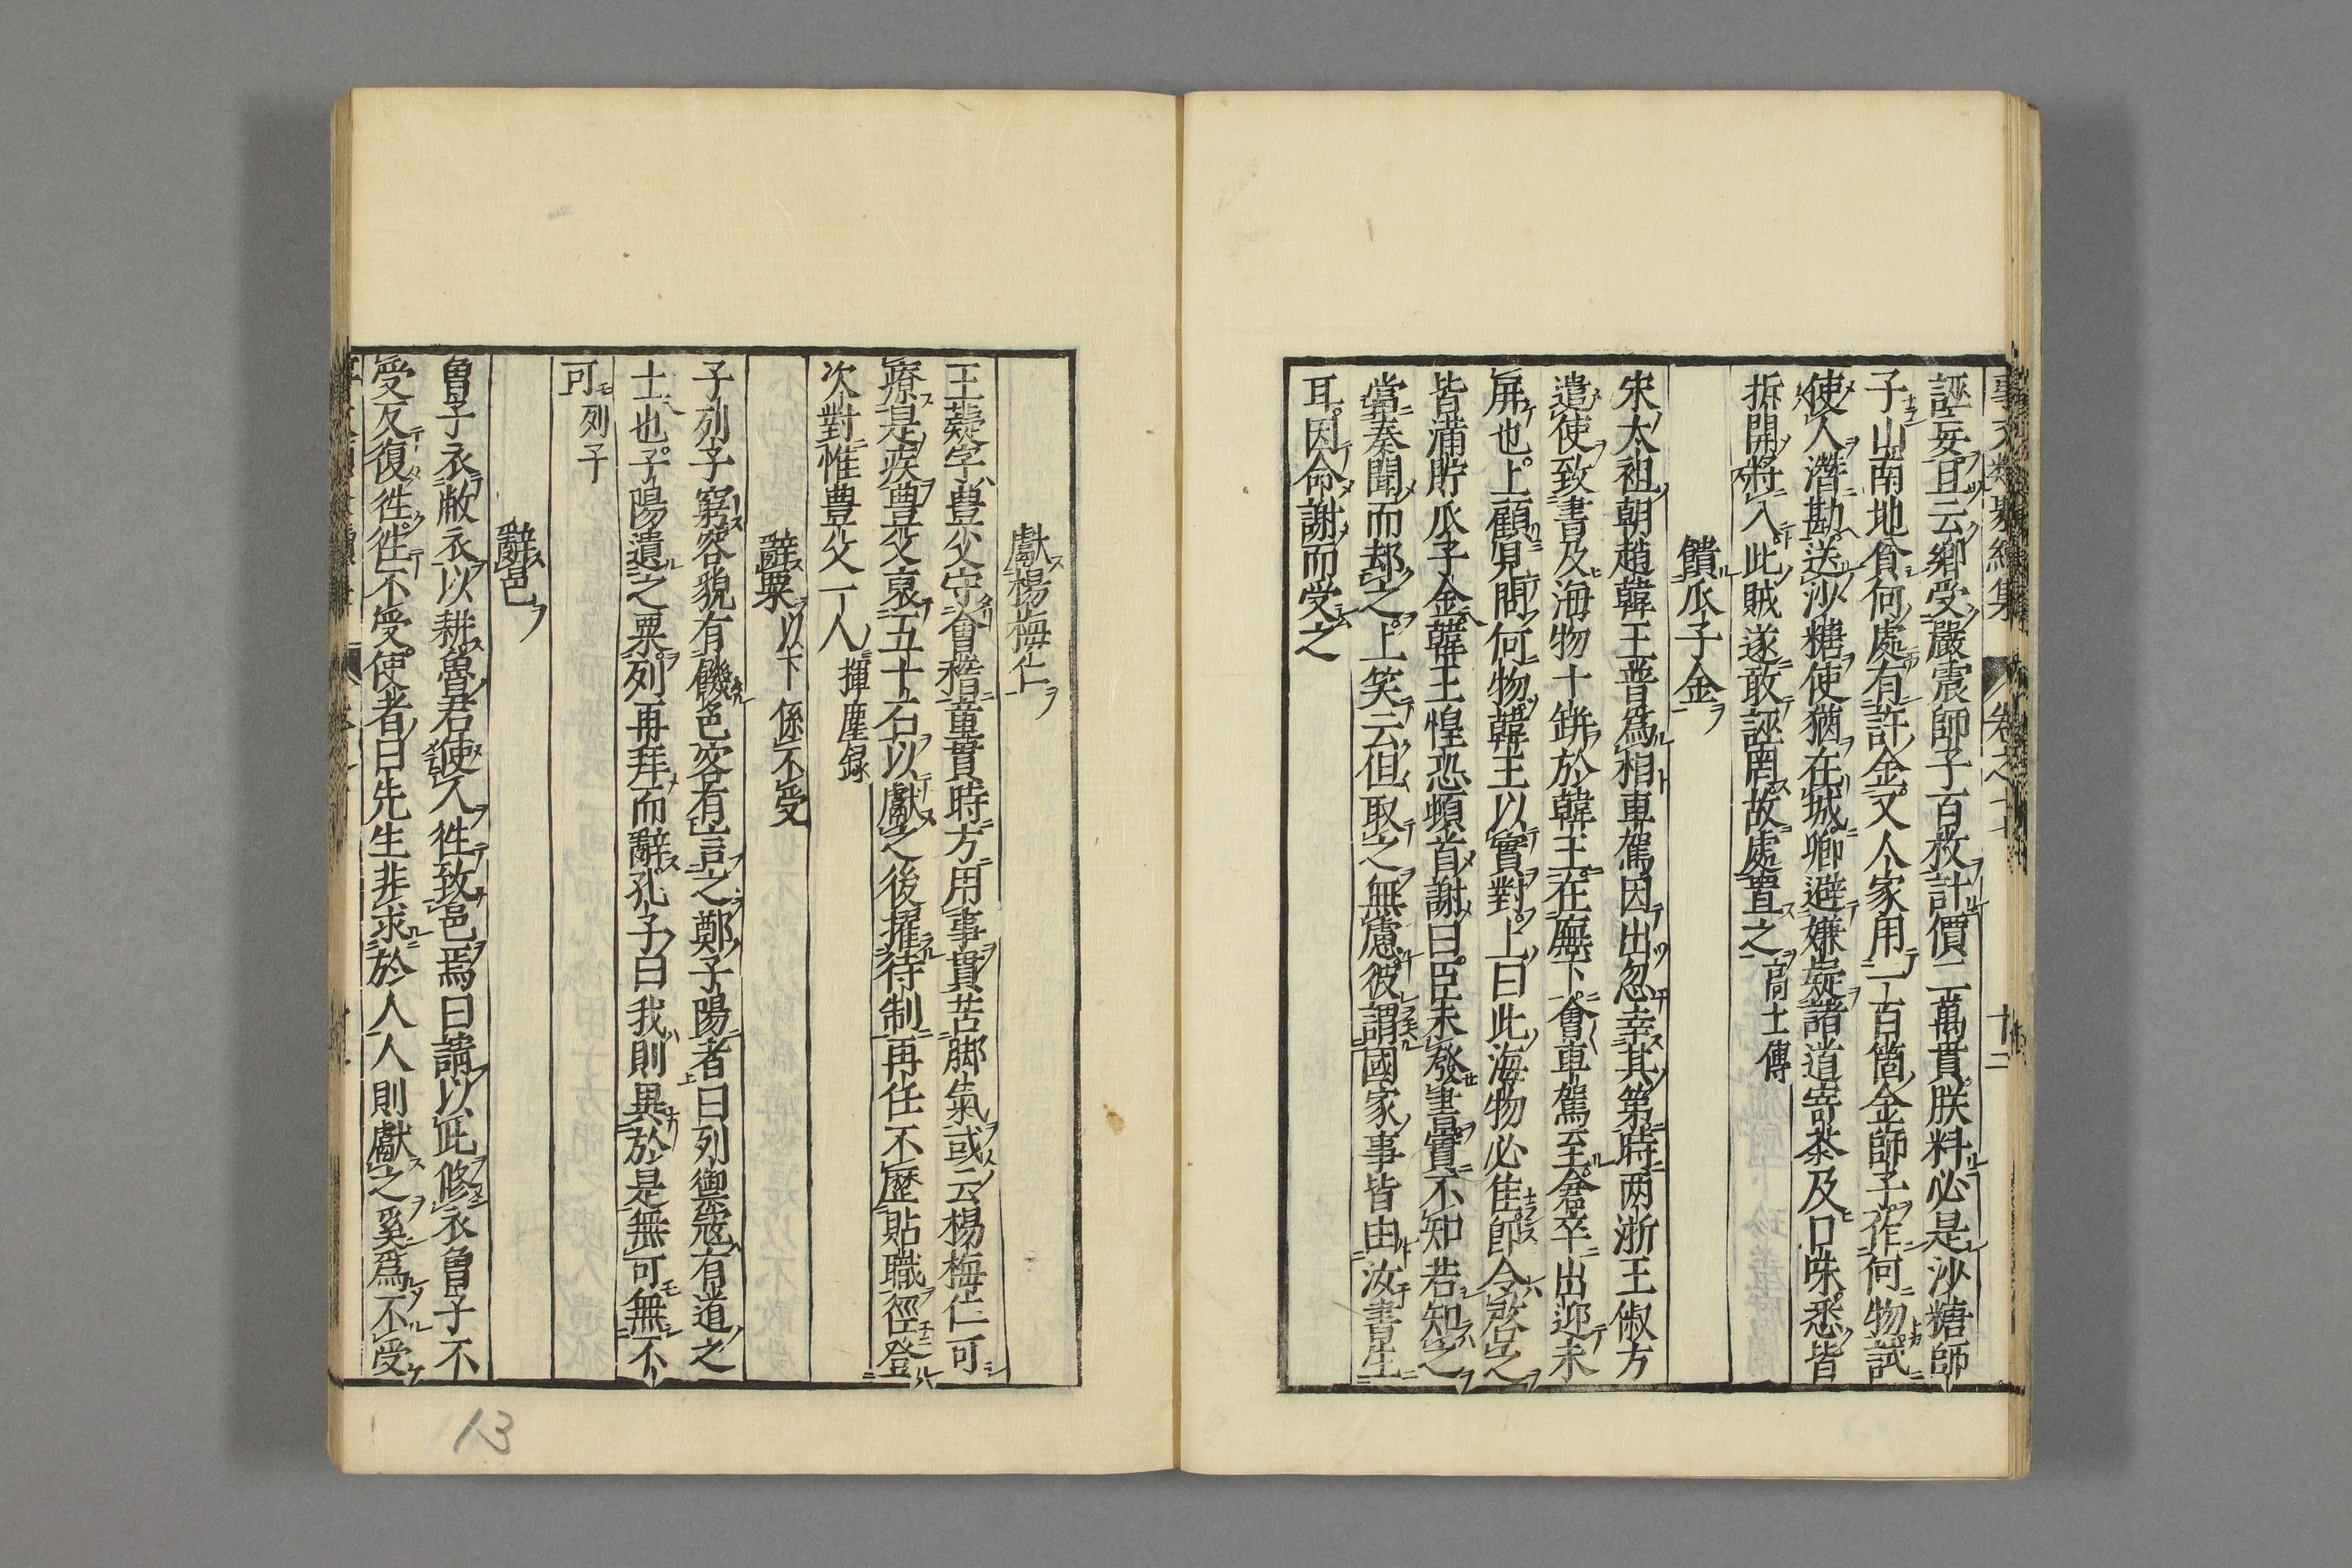 誣妄且云鄉受嚴震師子百枚計價二萬貫朕料必是沙糖師
子山南地貧何處有許金又人家用一百箇金師子作何物試
使人潛勘送沙糖使猶在城卿避嫌疑諸道寄茶及口味悉皆
拆開將入此賊遂敢誣罔故處置之高士傳
饋瓜子金
宋太祖朝趙韓王普為相車駕因出忽幸其第時兩浙王俶方
遣使致書及海物十缾於韓王在廡下會車駕至倉卒出迎未
屏也上顧見問何物韓王以實對上曰此海物必佳即令啓之
皆滿貯瓜子金韓王惶恐頓首謝曰臣未發書實不知若知之
當奏聞而却之上笑云但取之無慮彼謂國家事皆由汝書生
耳因命謝而受之
獻楊梅仁
王嶷字豊父守會稽童貫時方用事貫苦脚氣或云楊梅仁可
療是疾豊父裒五十石以獻之後擢待制再任不歷貼職徑登
次對惟豊父一人揮塵録
辭粟以下係不受
子列子窮容貌有饑色客有言之鄭子陽者曰列禦寇有道之
士也子陽遺之粟列再拜而辭孔子曰我則異於是無可無不
可列子
辭邑
曽子衣敝衣以耕魯君使人徃致邑焉曰請以此修衣曽子不
受反復徃徃不受使者曰先生非求於人人則獻之奚為不受
13